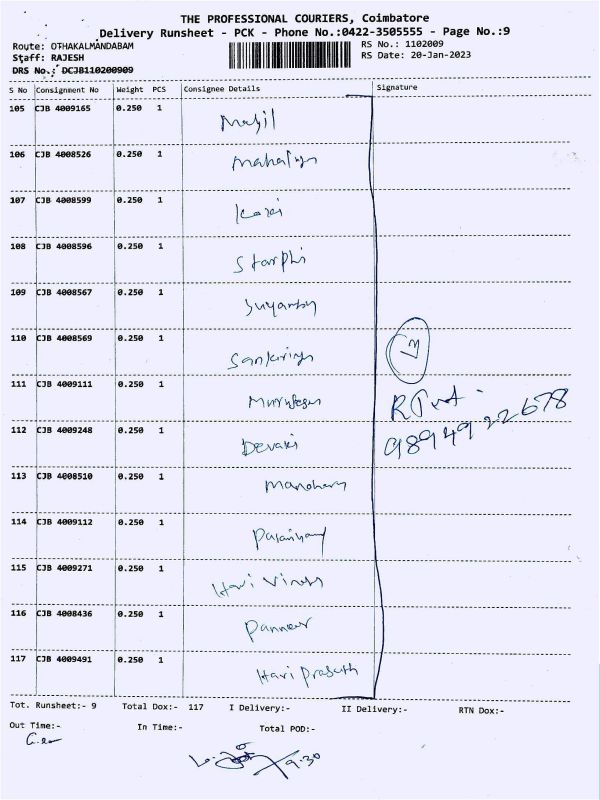 THE PROFESSIONAL COURIERS, Coimbatore
Delivery Runsheet - PCK - Phone No.:0422-3505555 - Page No.:9
Route: OTHAKALMANDABAM RS No.: 1102009
Staff: RAJESH RS Date: 20-Jan-2023
DRS No.: DCJB110200909
S No Consignment No Weight PCS Consignee Details Signature
105 CJB 4009165 0.250 1
106 CJB 4008526 0.250 1
107 CJB 4008599 0.250 1
108 CJB 4008596 0.250 1 Starphi
109 CJB 4008567 0.250 1
110 CJB 4008569 0.250 1 13
111 CJB 4009111 0.250 1 Murugesan
112 CJB 4009248 0.250 1 Devaki
9894922678
113 CJB 4008510 0.250 1 Manohary
114 CJB 4009112 0.250 1
115 CJB 4009271 0.250 1 Hari
116 CJB 4008436 0.250 1 Panneer
117 CJB 4009491 0.250 1 Hari Prasath
Tot. Runsheet:- 9 Total Dox:- 117 I Delivery:- II Delivery:- RTN Dox:-
Out Time:- In Time:- Total POD:-
9.30